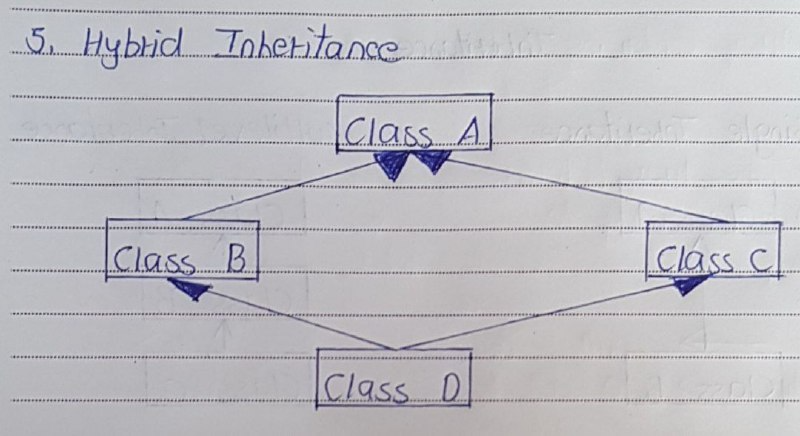 5. Hybrid Inheritance
Class A
Class B
Class C
Class D